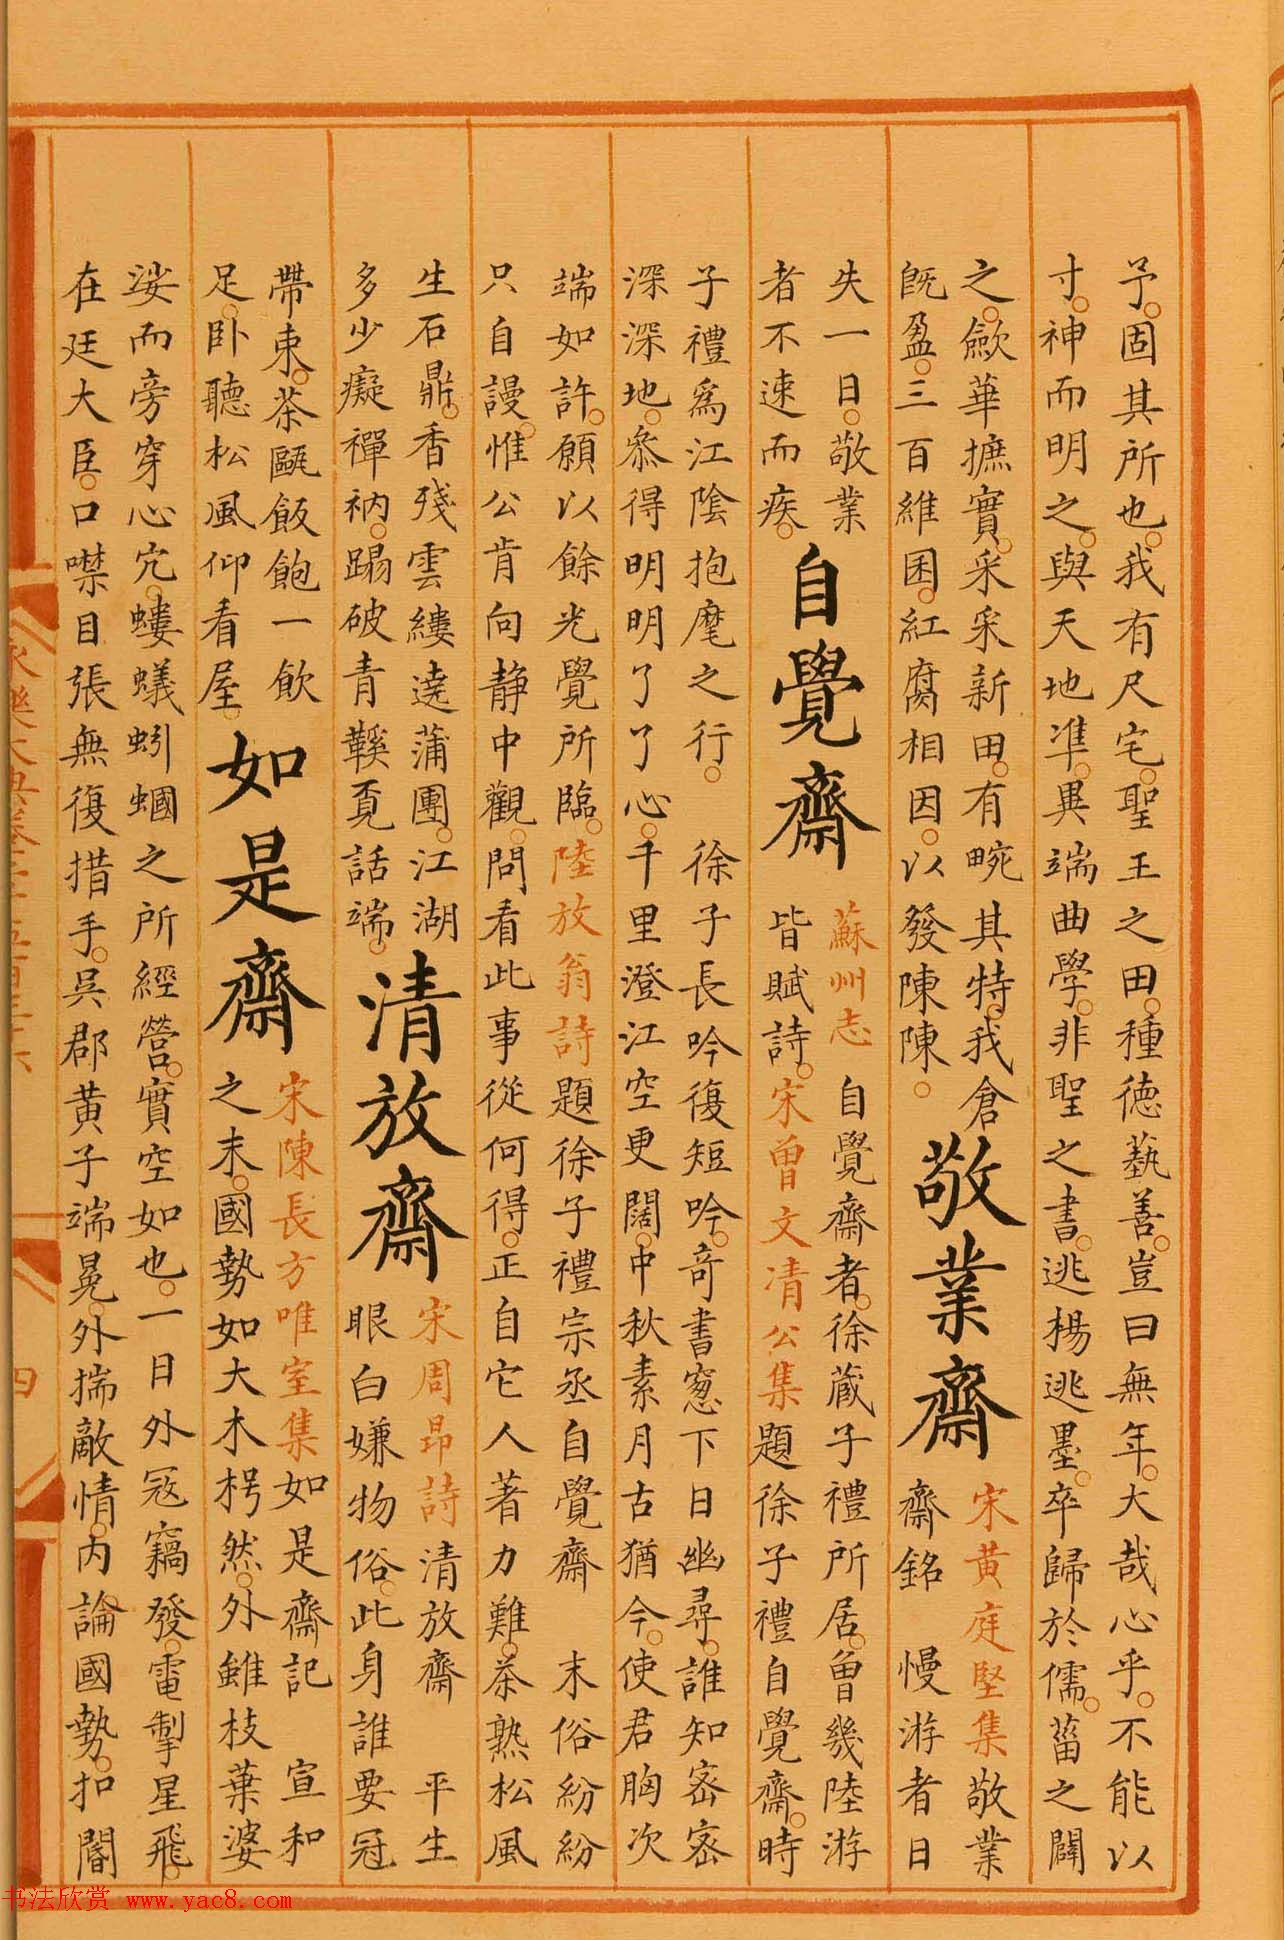 予。固其所也。我有尺宅。聖王之田。種德藝善。豈曰無年。大哉心乎。不能以
寸。神而明之。與天地準。異端曲學。非聖之書。逃楊逃墨。卒歸於儒。菑之闢
之。歛華摭實。采采新田。有畹其特。我倉
既盈。三百維囷。紅腐相因。以發陳陳。
敬業齋
宋黃庭堅集 敬業
齋銘 慢游者日
失一日。敬業
者不速而疾。
自覺齋
蘇州志 自覺齋者。徐蕆子禮所居。曾幾陸游
皆賦詩。宋曾文清公集題徐子禮自覺齋。時
子禮為江陰抱麾之行。 徐子長吟復短吟。奇書窓下日幽尋。誰知密密
深深地。叅得明明了了心。千里澄江空更闊。中秋素月古猶今。使君胸次
端如許。願以餘光覺所臨。陸放翁詩題徐子禮宗丞自覺齋 末俗紛紛
只自謾。惟公肯向静中觀。問看此事從何得。正自它人著力難。茶熟松風
生石鼎。香殘雲縷遶蒲團。江湖
多少癡禪衲。蹋破青鞵覔話端。
清放齋
宋周昂詩清放齋 平生
眼白嫌物俗。此身誰要冠
帶束。茶甌飯飽一飲
足。卧聽松風仰看屋。
如是齋
宋陳長方唯室集如是齋記 宣和
之末。國勢如大木枵然。外雖枝葉婆
娑而旁穿心宂。螻蟻蚓蟈之所經營。實空如也。一日外冦竊發。電掣星飛。
在廷大臣。口噤目張無復措手。吳郡黃子端冕。外揣敵情。內論國勢。扣閽
四
书法欣赏 www.yac8.com